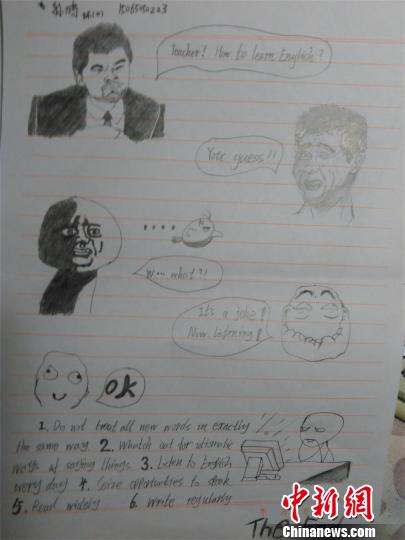 15065150223
Teacher! How to learn English?
You guess!!
....
W... what?!
It's a joke!
Now. listening!
OK
1. Do not treat all new words in exactly
the same way. 2. Whatch out for idiomatic
ways of saying things. 3. Listen to English
every day 4. Seize opportunities to speak
5. Read widely 6. Write regularly
The
中新网
www.chinanews.com